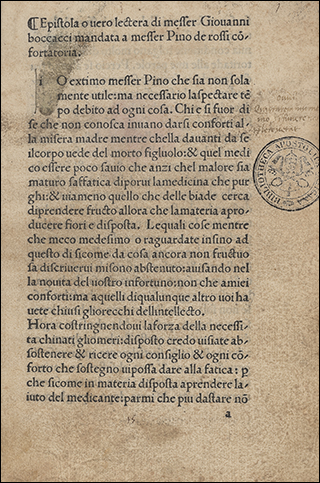 ❡Epistola o uero lectera di messer Giouanni
boccacci mandata a messer Pino de rossi cō-
fortatoria.
i O extimo messer Pino che sia non sola
mente utile: ma necessario laspectare tē
po debito ad ogni cosa. Chi e si fuor di
se che non conosca inuano darsi conforti al-
la misera madre mentre chella dauanti da se
ilcorpo uede del morto figliuolo: & quel medi
co essere poco sauio che anzi chel malore sia
maturo saffatica diporui lamedicina che pur
ghi: & uia meno quello che delle biade cerca
diprendere fructo allora che lamateria apro-
ducere fiori e disposta. Lequali cose mentre
che meco medesimo o raguardate insino ad
questo di sicome da cosa ancora non fructuo
sa discriuerui misono abstenuto: auisando nel
la nouita del uostro infortuno: non che amiei
conforti: ma aquelli diqualunque altro uoi ha
uete chiusi gliorecchi dellintellecto.
Hora costringnendoui laforza della necessi-
ta chinati gliomeri: disposto credo uisiate ab-
sostenere & ricere ogni consiglio & ogni cō-
forto che sostegno uipossa dare alla fatica: ꝑ
che sicome in materia disposta aprendere la-
iuto del medicante: parmi che piu dastare nō
a
BIBLIOTHECA APOSTOLICA